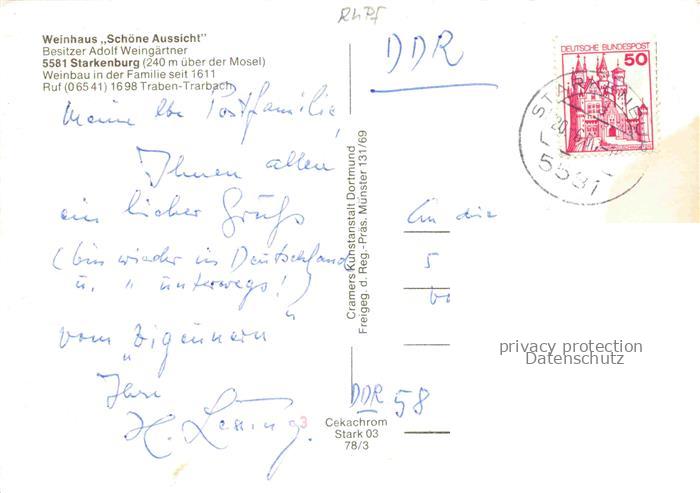 RhPf
Weinhaus „Schöne Aussicht"
Besitzer Adolf Weingärtner
5581 Starkenburg (240 m über der Mosel)
Weinbau in der Familie seit 1611
Ruf (0 65 41) 16 98 Traben-Trarbach
Meine lbe Postfamilie,
Ihnen allen
ein lieber Gruß
(bin wieder in Deutschland
u. " unterwegs!)
vom „Zigeunern"
Ihre
H.
Cramers Kunstanstalt Dortmund
Freigeg. d. Reg.-Präs. Münster 131/69
3
Cekachrom
Stark 03
78/3
DDR
DEUTSCHE BUNDESPOST
50
5581
An die
5
DDR 58
privacy protection
Datenschutz